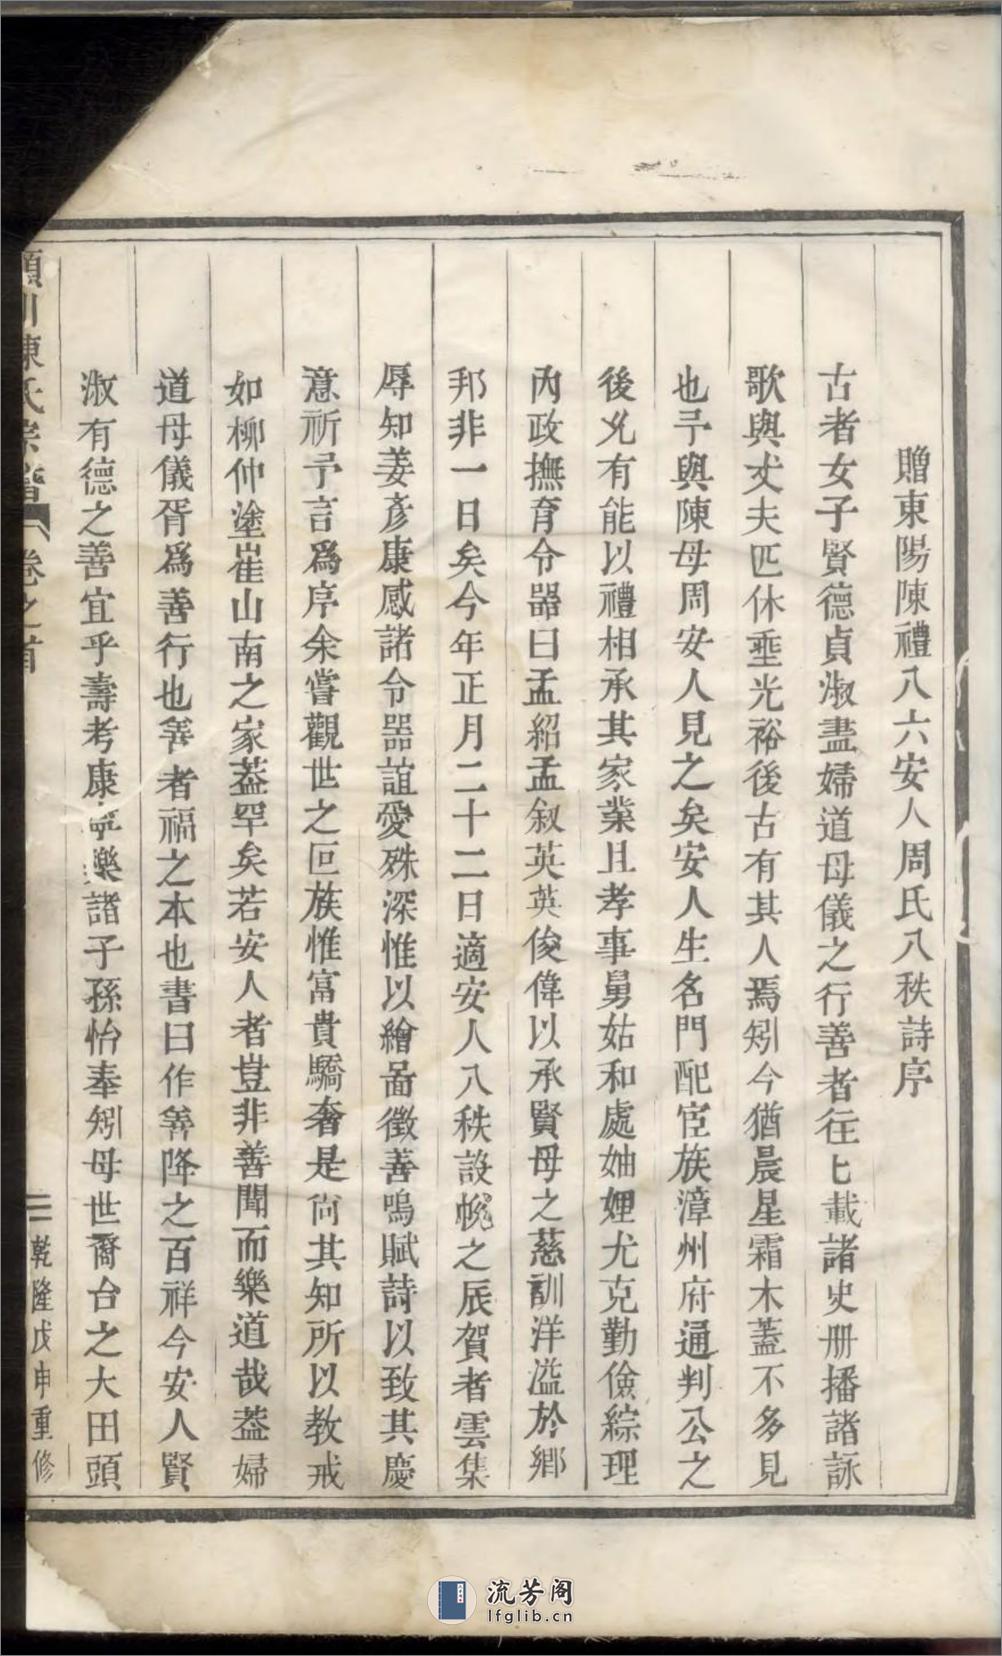 贈東陽陳禮八六安人周氏八秩詩序
古者女子賢德貞淑盡婦道母儀之行善者往匕載諸史册播諸詠
歌與丈夫匹休埀光裕後古有其人焉矧今猶晨星霜木蓋不多見
也予與陳母周安人見之矣安人生名門配宦族漳州府通判公之
後又有能以禮相承其家業且孝事舅姑和處妯娌尤克勤儉綜理
內政撫育令器曰孟紹孟叙英英俊偉以承賢母之慈訓洋溢於鄉
邦非一日矣今年正月二十二日適安人八秩設帨之辰賀者雲集
辱知姜彥康感諸令器誼愛殊深惟以繪啚徵善鳴賦詩以致其慶
意祈予言爲序余嘗觀世之巨族惟富貴驕奢是尚其知所以教戒
如柳仲塗崔山南之家葢罕矣若安人者豈非善聞而樂道哉葢婦
道母儀胥爲善行也善者福之本也書曰作善降之百祥今安人賢
淑有德之善宜乎壽考康寧樂諧子孫怡奉矧母世裔台之大田頭
潁川陳氏宗譜 卷之首 二 乾隆戊申重修
流芳阁
lfglib.cn